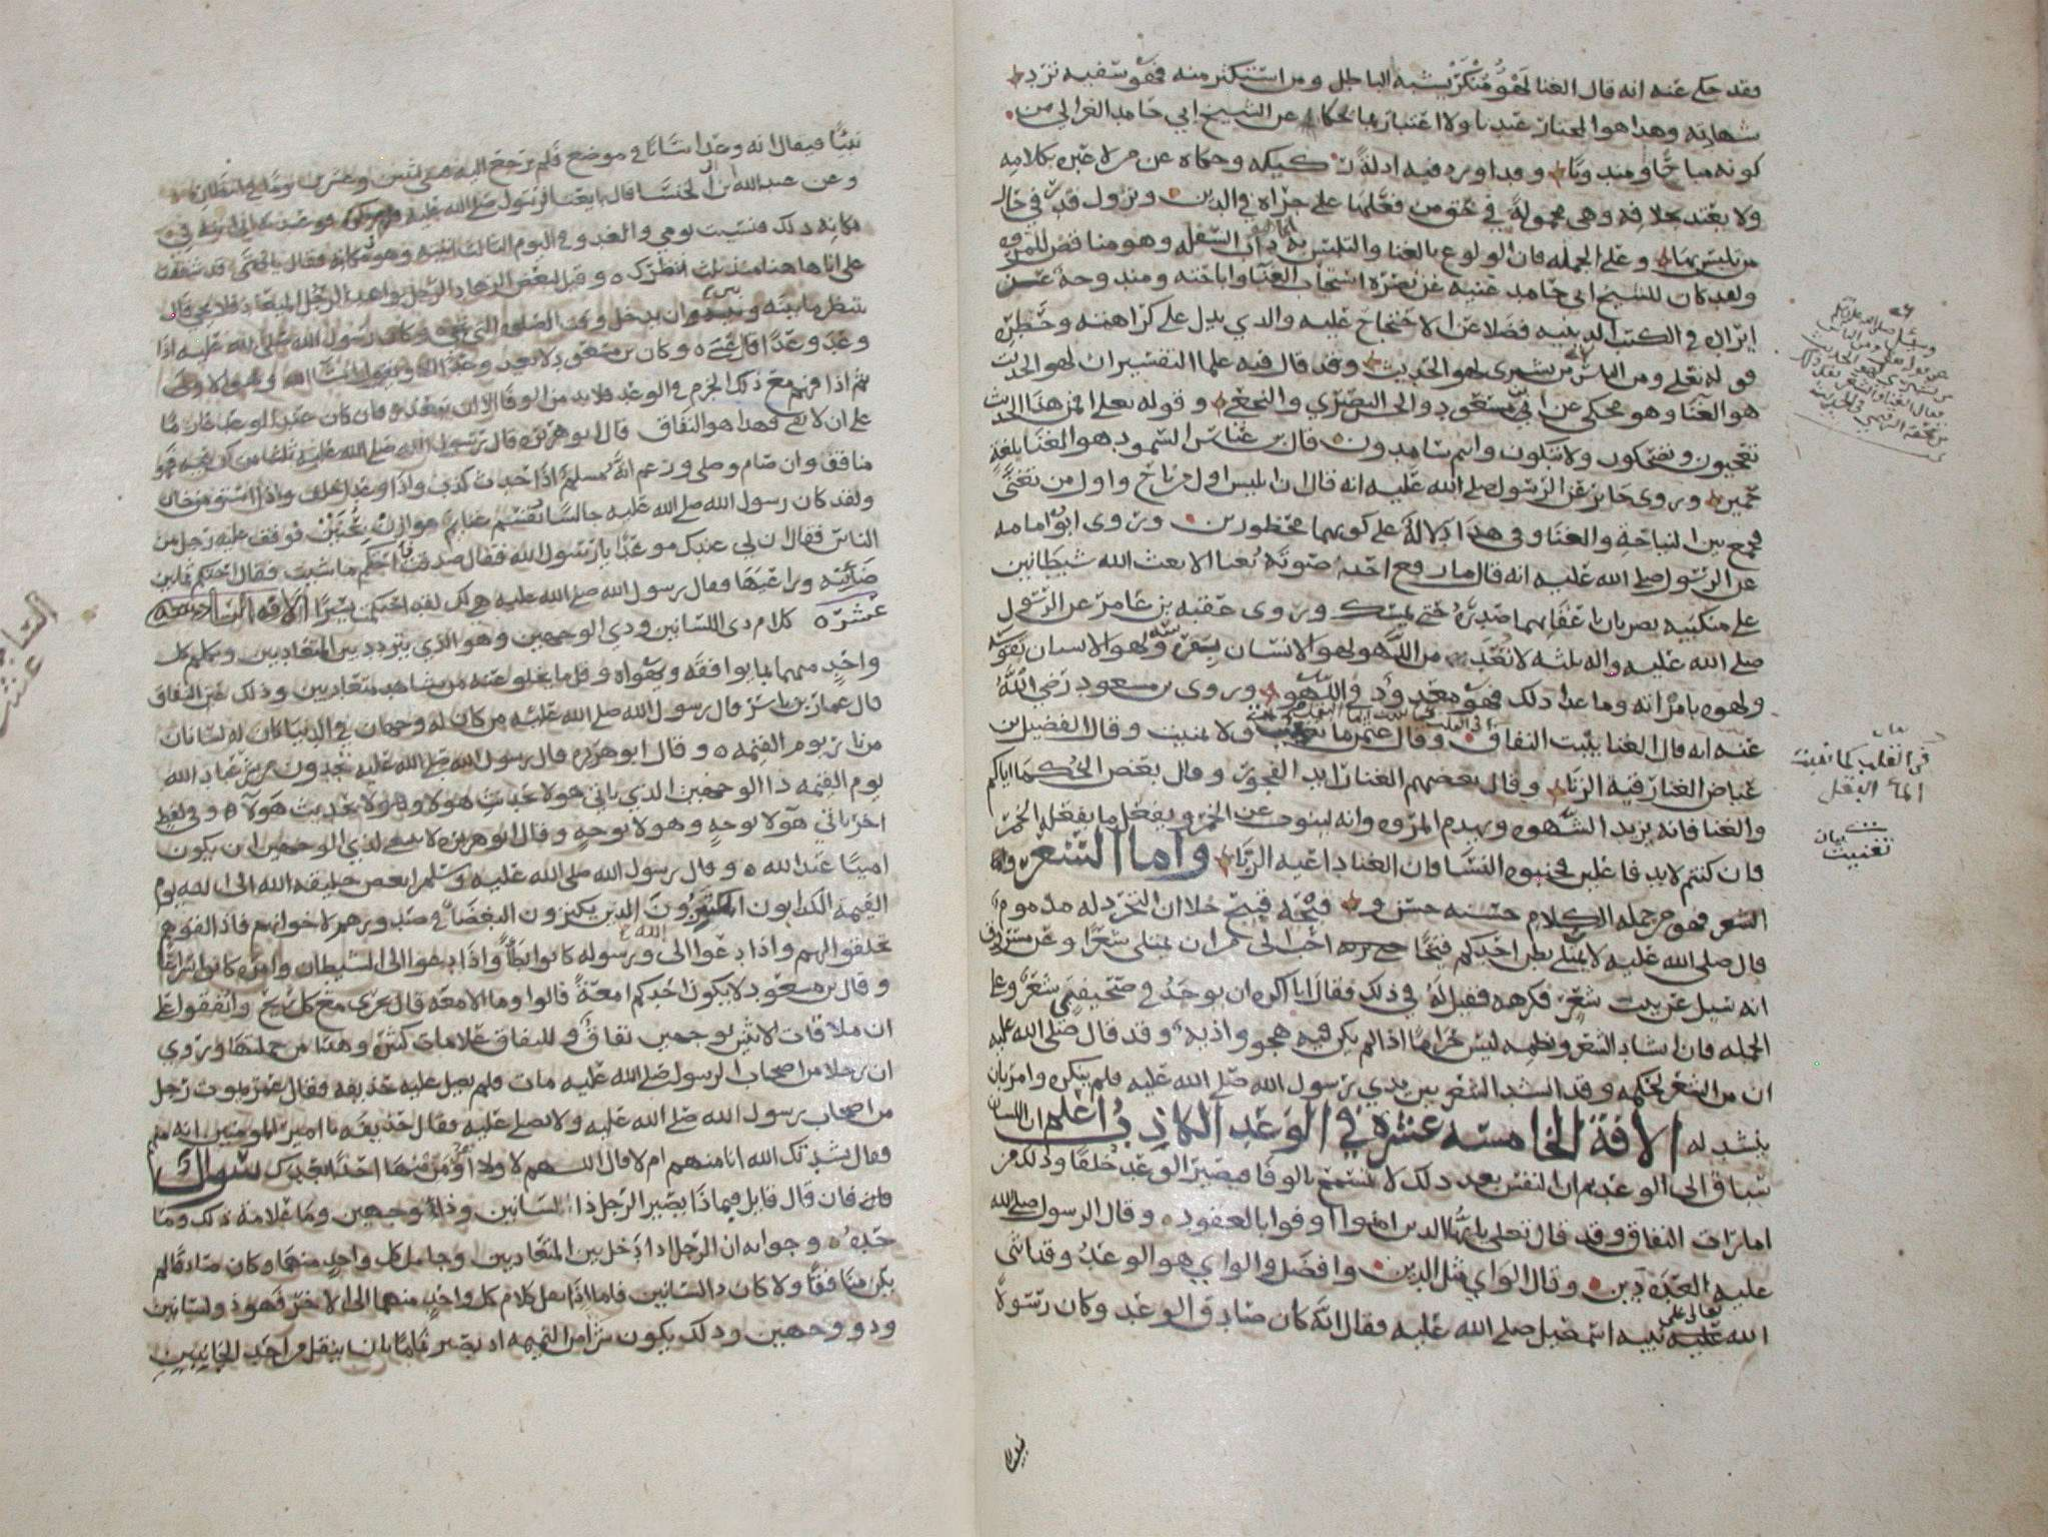 فقد حكي عنه انه قال الغنا لهو مُنْكَرٌ يشبه الباطل ومن استكثر منه فهو سفيه ترد
شهادته وهذا هو المختار عندنا ولا اعتبار بما حكاه عن الشيخ ابي حامد الغزالي من
كونه مباحًا ومندوبًا وقد اورد فيه ادلةً ركيكه وحكاه عن من لا عبره بكلامه
ولا يعتد بخلافه وهي محمولةً في حق من فعلها على جراه في الدين ونزول قدر في حال
من تلبس بها وعلى الجمله فان الولوع بالغنا والتلبس به داب السفله وهو مناقض للمروه
ولقد كان للشيخ ابي حامد غنيه عن نصرة استحباب الغنا واباحته ومندوحة عن
ايراده في الكتب الدينيه فضلا عن الاحتجاج عليه والذي يدل على كراهته وحظره
قوله تعلى ومن الناس من يشتري لهو الحديث وقد قال فيه علما التفسير ان لهو الحديث
هو الغنا وهو محكي عن ابن مسعود والحسن البصري والنخعي وقوله تعلى افمن هذا الحديث
تعجبون وتضحكون ولا تبكون وانتم سامدون قال بن عباس السمود هو الغنا بلغة
حمير وروى جابر عن الرسول صلى الله عليه انه قال ان ابليس اول من ناح واول من تغنى
فجمع بين النياحة والغنا وفي هذا دلالة على كونهما محظورين وروى ابو امامه
عن الرسول صلى الله عليه انه قال ما رفع احد صوته بغنا الا بعث الله شيطانين
على منكبيه يضربان باعقابهما صدره حتى يمسك وروى عقبه بن عامر عن الرسول
صلى الله عليه واله ثلثه لا تعد من اللهو لهو الانسان بفرسه ولهو الانسان بقوسه
ولهوه بامراته وما عدا ذلك فهو معدود في اللهو وروى بن مسعود رضي الله
عنه انه قال الغنا ينبت النفاق وقال الفضيل بن
عياض الغنا رقية الزنا وقال بعضهم الغنا رايد الفجور وقال بعض الحكما اياكم
والغنا فانه يزيد الشهوه ويهدم المروه وانه لينوب عن الخمر ويفعل ما يفعله الخمر
فان كنتم لابد فاعلين فجنبوه النسا فان الغنا داعيه الزنا واما الشعر
الشعر فهو من جمله الكلام حسنه حسن وقبيحه قبيح خلا ان التجرد له مذموم
قال صلى الله عليه لا يمتلي بطن احدكم قيحًا احب الي من ان يمتلي شعرًا وعن مسروق
انه سيل عن بيت شعر فكرهه فقيل له في ذلك فقال انا اكره ان يوجد في صحيفتي شعر وعلى
الجمله فان انشاد الشعر ونظمه ليس حرامًا اذا لم يكن فيه هجو واذيه وقد قال صلى الله عليه
ان من الشعر لحكمه وقد انشد الشعر بين يدي رسول الله صلى الله عليه فلم ينكره وامر بان
ينشد له الافة الخامسه عشره في الوعد الكاذب اعلم ان اللسان
سباق الى الوعد ثم ان النفس بعد ذلك لا تسمح بالوفا فيصير الوعد خلفًا وذلك من
امارات النفاق وقد قال تعلى يايها الذين امنوا اوفوا بالعقود وقال الرسول صلى الله
عليه العده دين وقال الواي مثل الدين وافضل والواي هو الوعد وقد اثنى
الله تعالى على نبيه اسمعيل صلى الله عليه فقال انه كان صادق الوعد وكان رسولا
في القلب كما تنبت
الما البقل
بيان
تنبيت
نبيًا فيقال انه وعد انسانا في موضع فلم يرجع اليه
وعن عبد الله بن ابي الحنسا قال بايعت الرسول صلى الله عليه
مكانه ذلك فنسيت يومي والغد وفي اليوم الثالث اتيته وهو مكانه فقال يا فتى قد شققت
علي انا هاهنا منذ ثلث انتظرك وقيل لبعض الزهاد الرجل يواعد الرجل الميعاد فلا يجي قال
ينتظر ما بينه وبين ان يدخل وقت الصلوه التي تجي وكان رسول الله صلى الله عليه اذا
وعد وعدًا قال عسى وكان بن مسعود لا يعد وعدًا الا ويقول ان شا الله وهو الاولى
ثم اذا فهم مع ذلك الجزم في الوعد فلا بد من الوفا الا ان يتعذر فان كان عند الوعد عازمًا
على ان لا يفي فهذا هو النفاق قال ابو هريره قال رسول الله صلى الله عليه ثلث من كن فيه فهو
منافق وان صام وصلى وزعم انه مسلم اذا حدث كذب واذا وعد اخلف واذا اتمن خان
ولقد كان رسول الله صلى الله عليه جالسًا يقسم غنايم هوازن بحنين فوقف عليه رجل من
الناس فقال ان لي عندك موعدًا يا رسول الله فقال صدقت فاحتكم ما شيت فقال احتكم ثمانين
ضاينه وراعيها فقال رسول الله صلى الله عليه هي لك لقد احتكمت يسيرًا الافه السادسه
عشره كلام ذي اللسانين وذي الوجهين وهو الذي يتردد بين المتعاديين ويكلم كل
واحدٍ منهما بما يوافقه ويهواه وقل ما يخلو عنه من يشاهد متعاديين وذلك عين النفاق
قال عمار بن ياسر قال رسول الله صلى الله عليه من كان له وجهان في الدنيا كان له لسانان
من نار يوم القيمه وقال ابو هريره قال رسول الله صلى الله عليه تجدون من شر عباد الله
يوم القيمه ذا الوجهين الذي ياتي هولا بحديث هولا وهولا بحديث هولا وفي لفظ
اخر ياتي هولا بوجهٍ وهولا بوجهٍ وقال ابو هريره لا ينبغي لذي الوجهين ان يكون
امينًا عند الله وقال رسول الله صلى الله عليه وسلم ابغض خليقه الله الى الله يوم
القيمه الكذابون المستكبرون الذين يكنزون البغضا في صدورهم لاخوانهم فاذا لقوهم
تملقوا لهم واذا دعوا الى الله ورسوله كانوا بطاً واذا دعوا الى الشيطان وامره كانوا سراعًا
وقال بن مسعود لا يكون احدكم امعةً قالوا وما الامعه قال يجري مع كل ريح واتفقوا على
ان ملاقات الاثنين بوجهين نفاق وللنفاق علامات كثيره وهذا من جملتها وروي
ان رجلا من اصحاب الرسول صلى الله عليه مات فلم يصل عليه حذيفه فقال عمر يموت رجل
من اصحاب رسول الله صلى الله عليه ولا تصلي عليه فقال حذيفه يا امير المومنين انه منهم
فقال نشدتك الله انا منهم ام لا قال اللهم لا ولا اومن منها احدًا بعدك سوال
فان قال قايل فبماذا يصير الرجل ذا لسانين وذا وجهين وما علامة ذلك وما
حده وجوابه ان الرجل اذا دخل بين المتعاديين وجامل كل واحدٍ منهما وكان صادقًا لم
يكن منافقًا ولا كان ذا لسانين فاما اذا نقل كلام كل واحدٍ منهما الى الاخر فهو ذو لسانين
وذو وجهين وذلك يكون شرًا من النميمه اذ يصير نمامًا بان ينقل من احد الجانبين